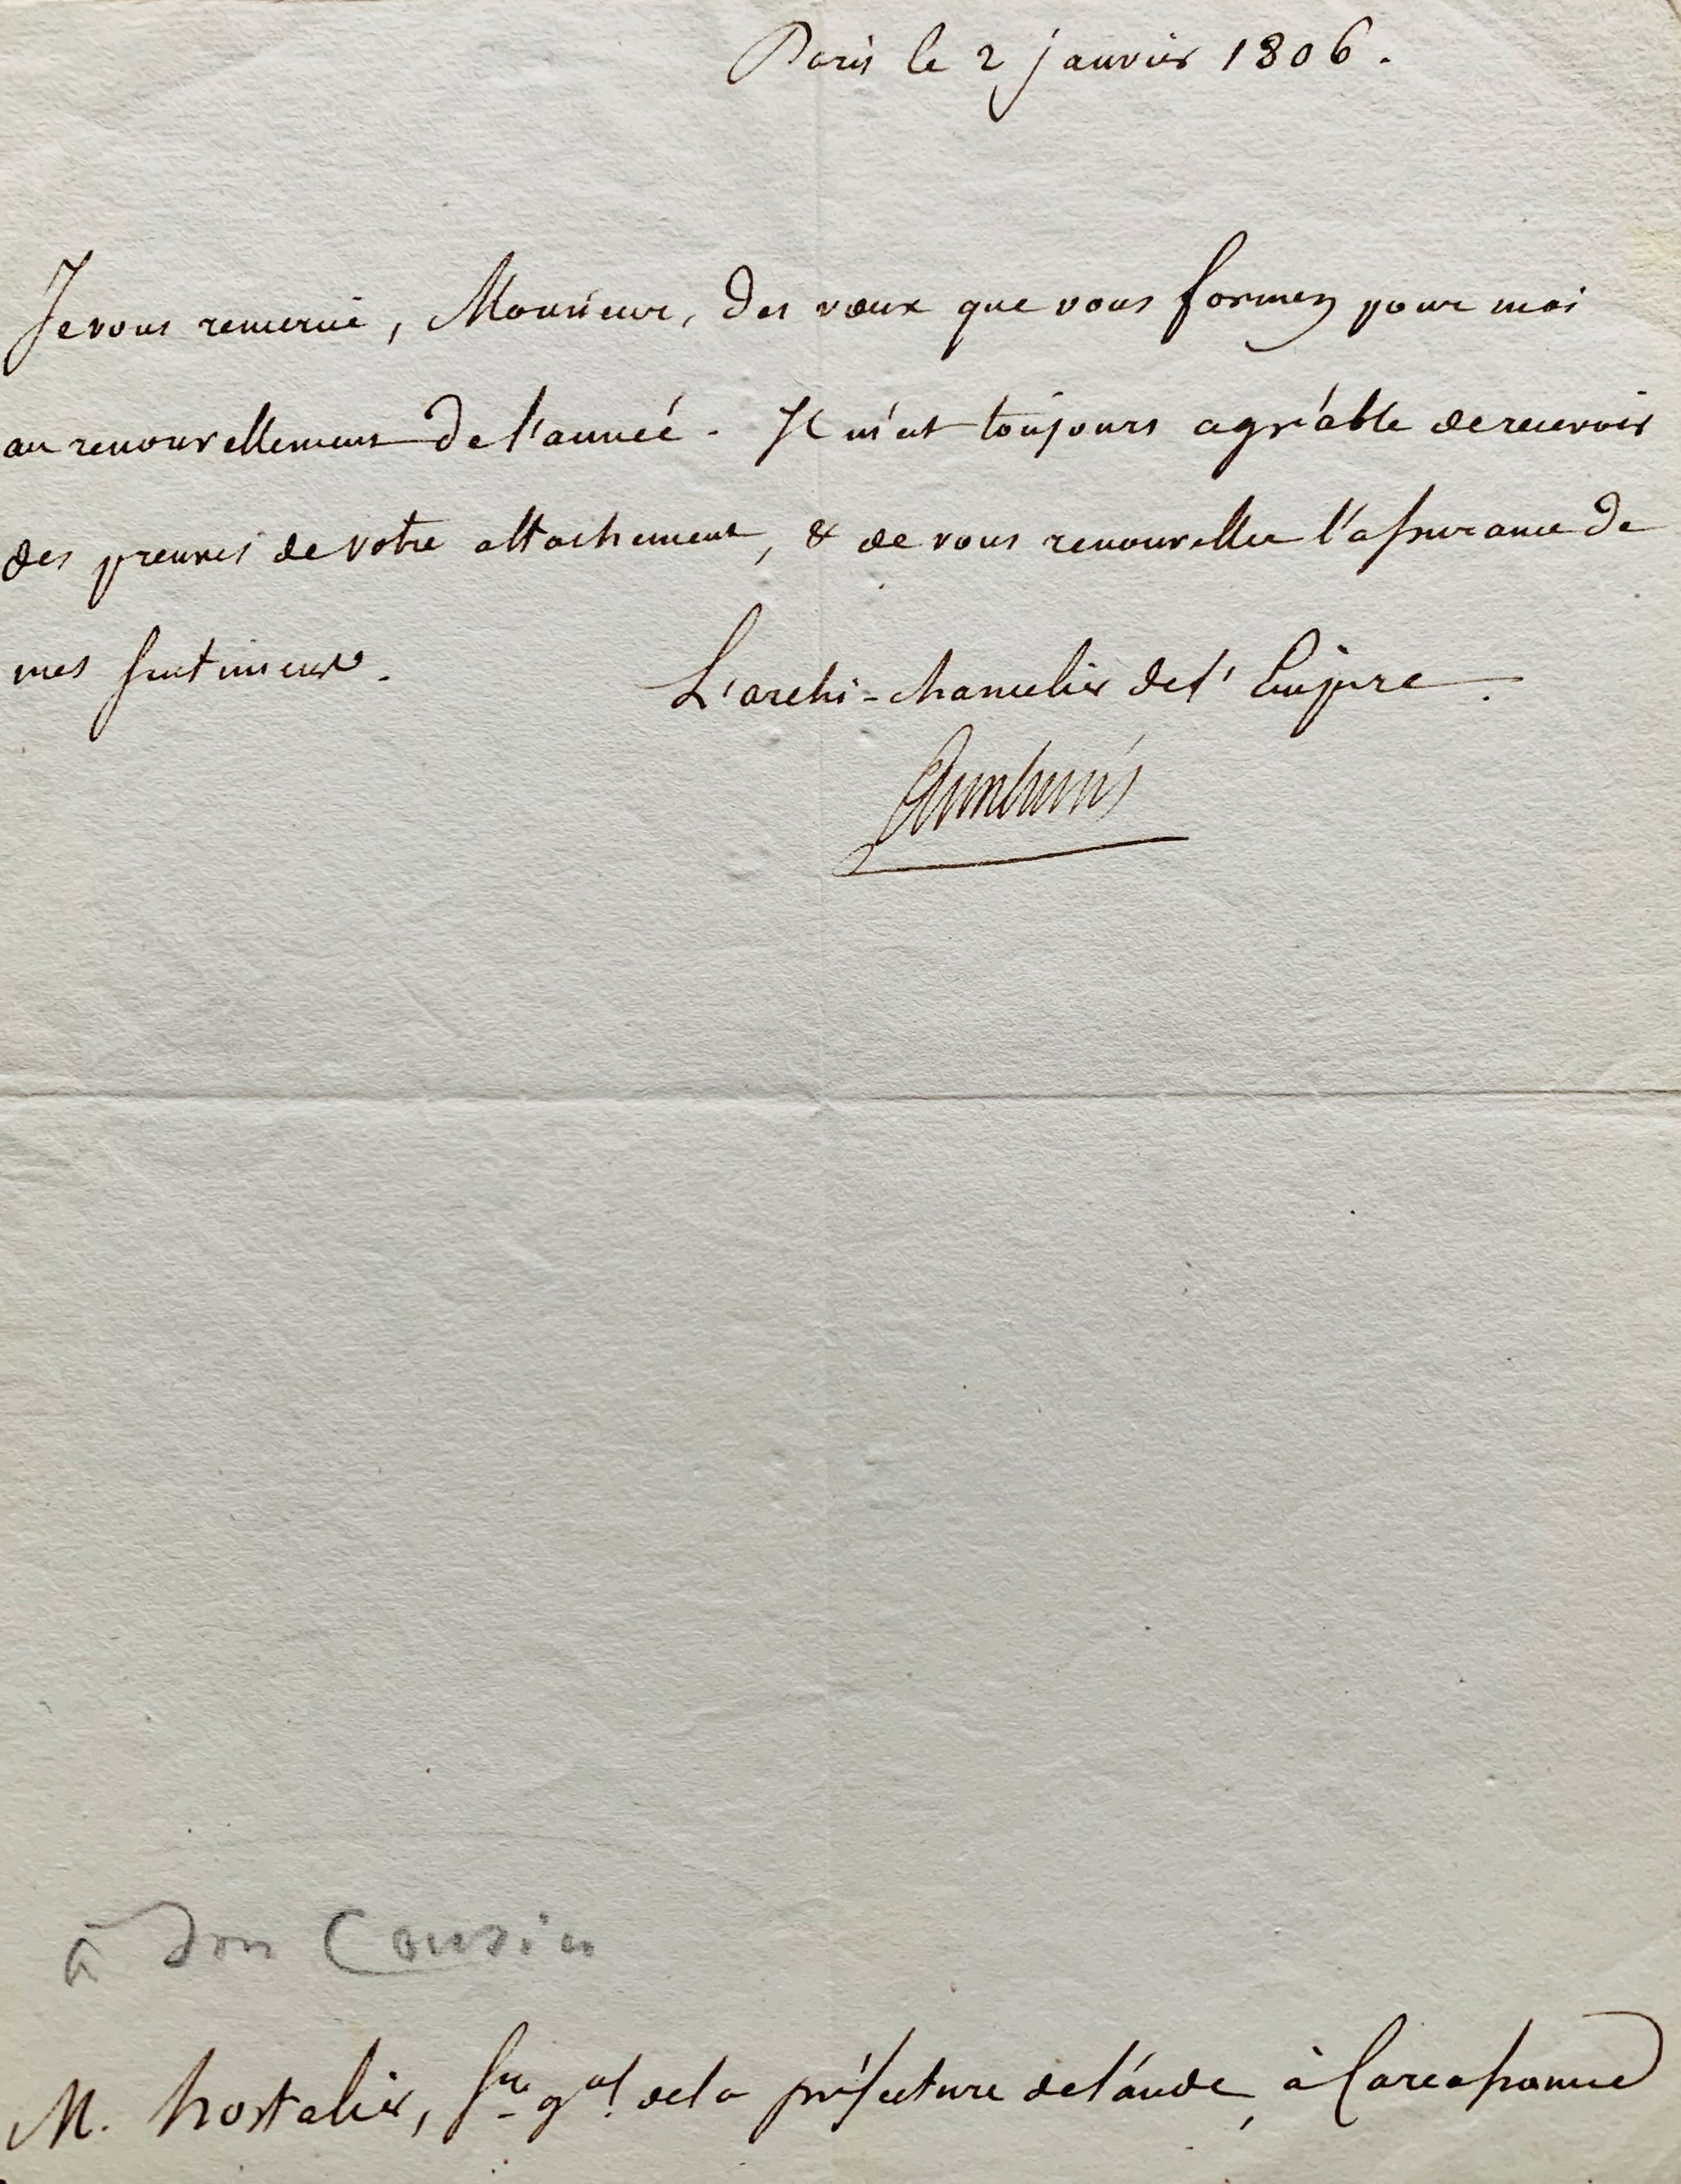 Paris le 2 janvier 1806.
Je vous remercie, Monsieur, des vœux que vous formez pour moi
au renouvellement de l'année. Il m'est toujours agréable de recevoir
des preuves de votre attachement, & de vous renouveller l'assurance de
mes sentimens.
L'archi-chancelier de l'Empire.
Cambacérès
à son Cousin
M. hostalier, Sre gal de la préfecture de l'aude, à Carcassonne